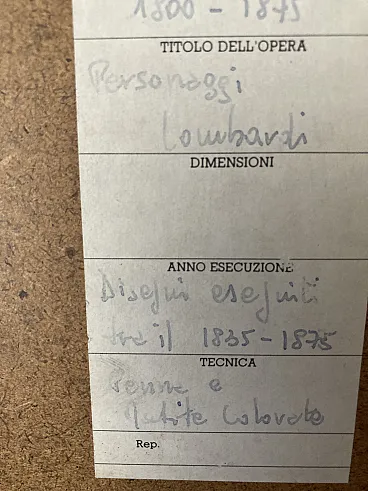 1800 - 1875
TITOLO DELL'OPERA
Personaggi
Lombardi
DIMENSIONI
ANNO ESECUZIONE
Disegni eseguiti
tra il 1835-1875
TECNICA
Penna e
Matite Colorate
Rep.